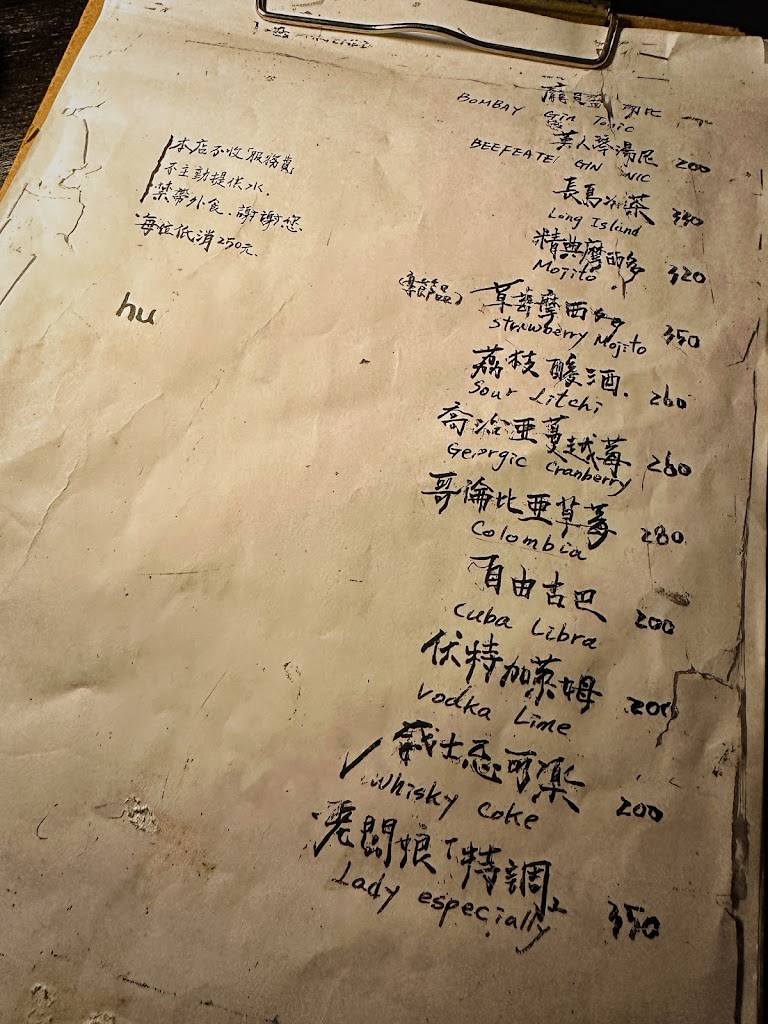 本店不收服務費
不主動提供水.
禁帶外食.謝謝您.
每位低消250元.
hu
BOMBAY Gin Tonic
英人琴湯尼 200
BEEFEATE GIN NIC
長島冰茶 330
Long Islind
精典摩西多 320
Mojito
(季節品) 草莓摩西多 350
Strawberry Mojito
荔枝酸酒. 260
Sour Litchi
喬治亞蔓越莓 260
Georgic Cranberry
哥倫比亞草莓 280
Colombia
自由古巴 200
Cuba Libra
伏特加萊姆 200
Vodka Lime
✓ 威士忌可樂 200
Whisky Coke
老闆娘「特調」 350
Lady especially